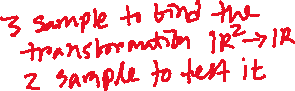 3 sample to bind the
transformation ℝ² → ℝ
2 sample to test it